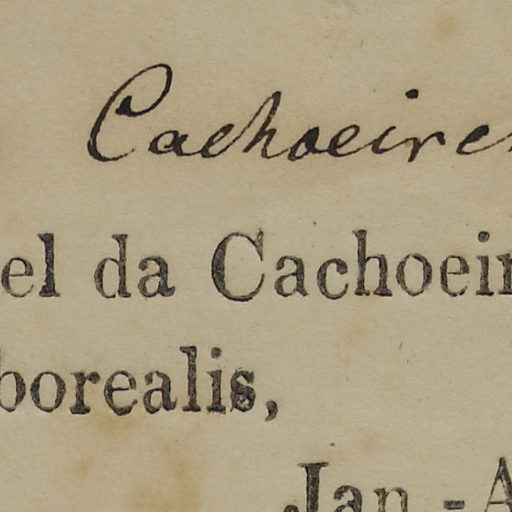 Cachoeire
el da Cachoeir
borealis,
Jan.-A